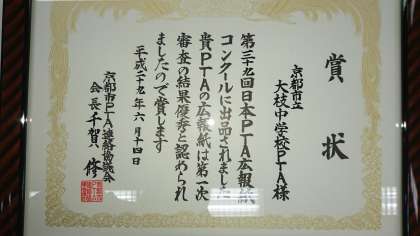 賞状
京都市立
大枝中学校PTA様
第三十九回日本PTA広報紙
コンクールに出品されました
貴PTAの広報紙は第一次
審査の結果優秀と認められ
ましたので賞します
平成二十九年六月十四日
京都市PTA連絡協議会
会長千賀修